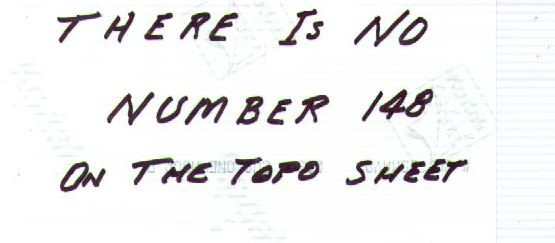 THERE IS NO
NUMBER 148
ON THE TOPO SHEET